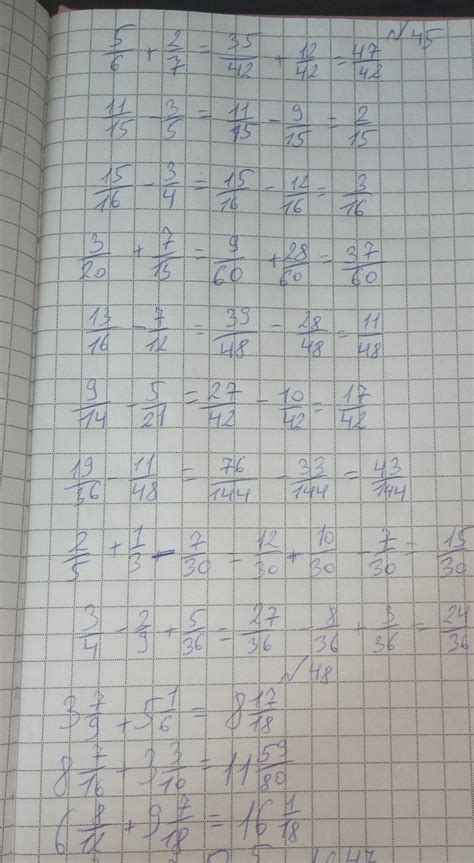 №45
5/6 + 2/7 = 35/42 + 12/42 = 47/42
11/15 - 3/5 = 11/15 - 9/15 = 2/15
15/16 - 3/4 = 15/16 - 12/16 = 3/16
3/20 + 7/15 = 9/60 + 28/60 = 37/60
13/16 - 7/12 = 39/48 - 28/48 = 11/48
9/14 - 5/21 = 27/42 - 10/42 = 17/42
19/36 - 11/48 = 76/144 - 33/144 = 43/144
2/5 + 1/3 - 7/30 = 12/30 + 10/30 - 7/30 = 15/30
3/4 - 2/9 + 5/36 = 27/36 - 8/36 + 5/36 = 24/36
№48
3 7/9 + 5 1/6 = 8 17/18
8 7/16 + 3 3/10 = 11 59/80
6 8/12 + 9 7/18 = 16 1/18